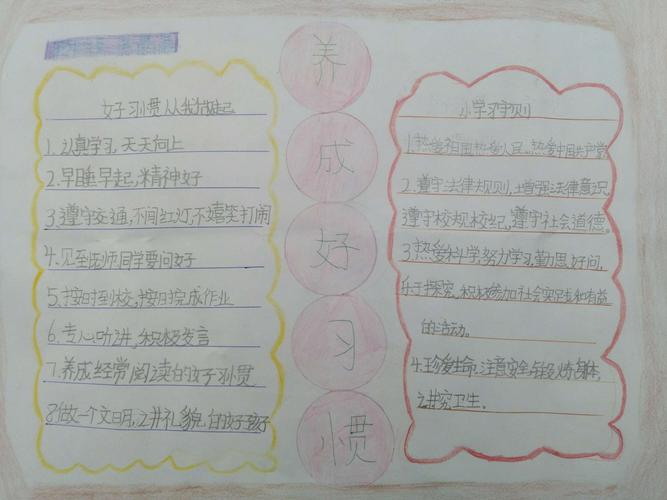 养成好习惯
好习惯从我做起
1.认真学习,天天向上
2.早睡早起,精神好
3.遵守交通,不闯红灯,不嬉笑打闹
4.见到老师同学要问好
5.按时到校,按时完成作业
6.专心听讲,积极发言
7.养成经常阅读的好习惯
8.做一个文明,讲礼貌的好孩子
小学习守则
1.热爱祖国热爱人民,热爱中国共产党
2.遵守法律规则,增强法律意识
遵守校规校纪,遵守社会道德。
3.热爱科学,努力学习,勤思好问,
乐于探究,积极参加社会实践和有益
的活动。
4.珍爱生命,注意安全,锻炼身体,
讲究卫生。